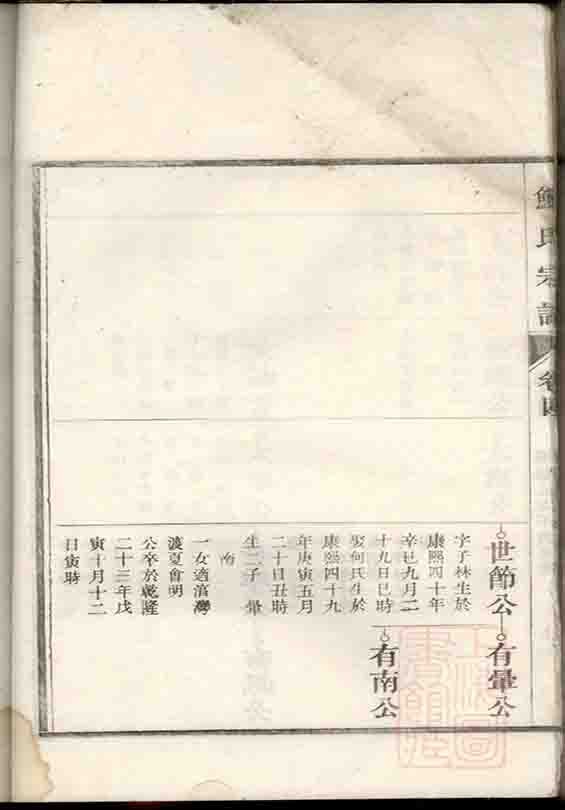 氏宗譜
卷四
世節公
字子林生於
康熙四十年
辛巳九月二
十九日巳時
娶何氏生於
康熙四十九
年庚寅五月
二十日丑時
生二子 暈
南
一女適萡灣
渡夏會明
公卒於乾隆
二十三年戊
寅十月十二
日寅時
有暈公
有南公
上海圖書館藏